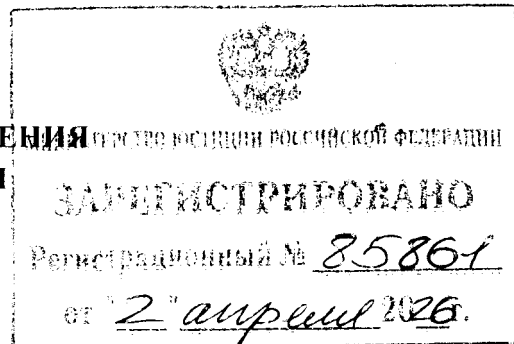 ЕНИЯ
МИНИСТЕРСТВО ЮСТИЦИИ РОССИЙСКОЙ ФЕДЕРАЦИИ
ЗАРЕГИСТРИРОВАНО
Регистрационный № 85861
от "2" апреля 2026г.